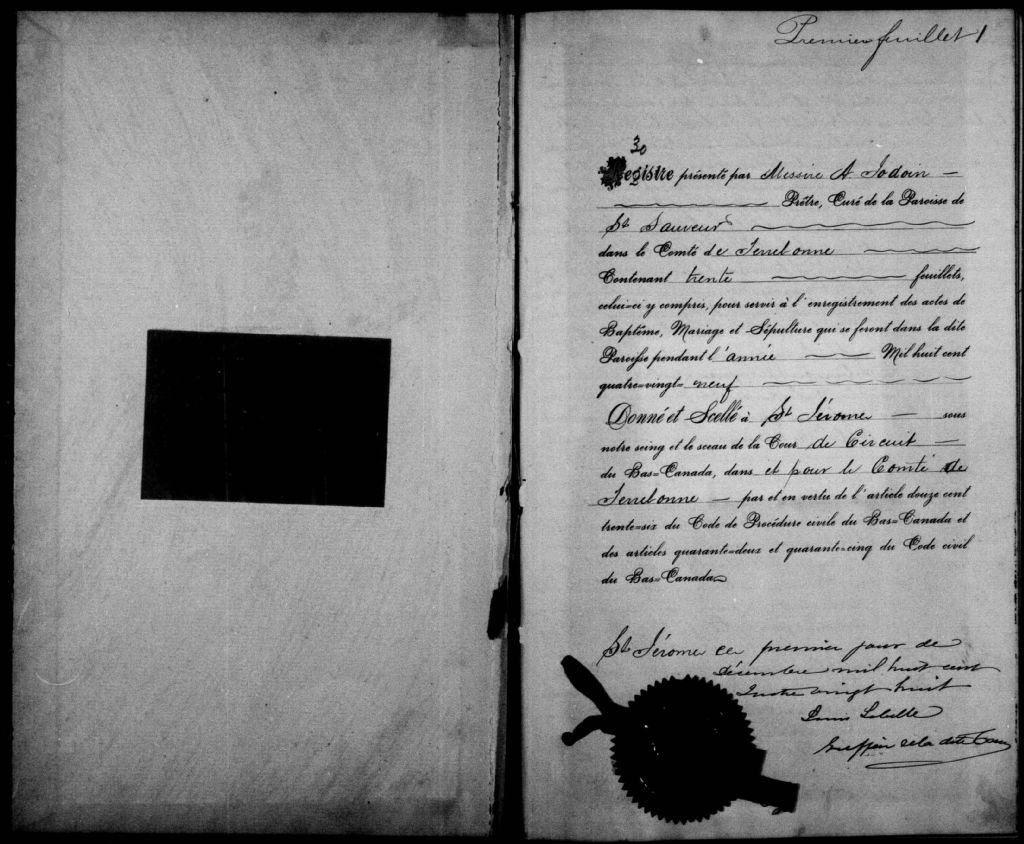 Premier feuillet 1
30
Registre présenté par Messire A Jodoin —
Prêtre, Curé de la Paroisse de
St Sauveur
dans le Comté de Terrebonne
Contenant trente feuillets,
celui=ci y compris, pour servir à l'enregistrement des actes de
Baptême, Mariage et Sépulture qui se feront dans la dite
Paroisse pendant l'année Mil huit cent
quatre=vingt= neuf
Donné et Scellé à St Jérome — sous
notre seing et le sceau de la Cour de Circuit —
du Bas=Canada, dans et pour le Comté de
Terrebonne — par et en vertu de l'article douze cent
trente=six du Code de Procédure civile du Bas=Canada et
des articles quarante=deux et quarante=cinq du Code civil
du Bas=Canada
St Jérome ce premier jour de
décembre mil huit cent
quatre vingt huit
Labelle
Greffier de la dite Cour